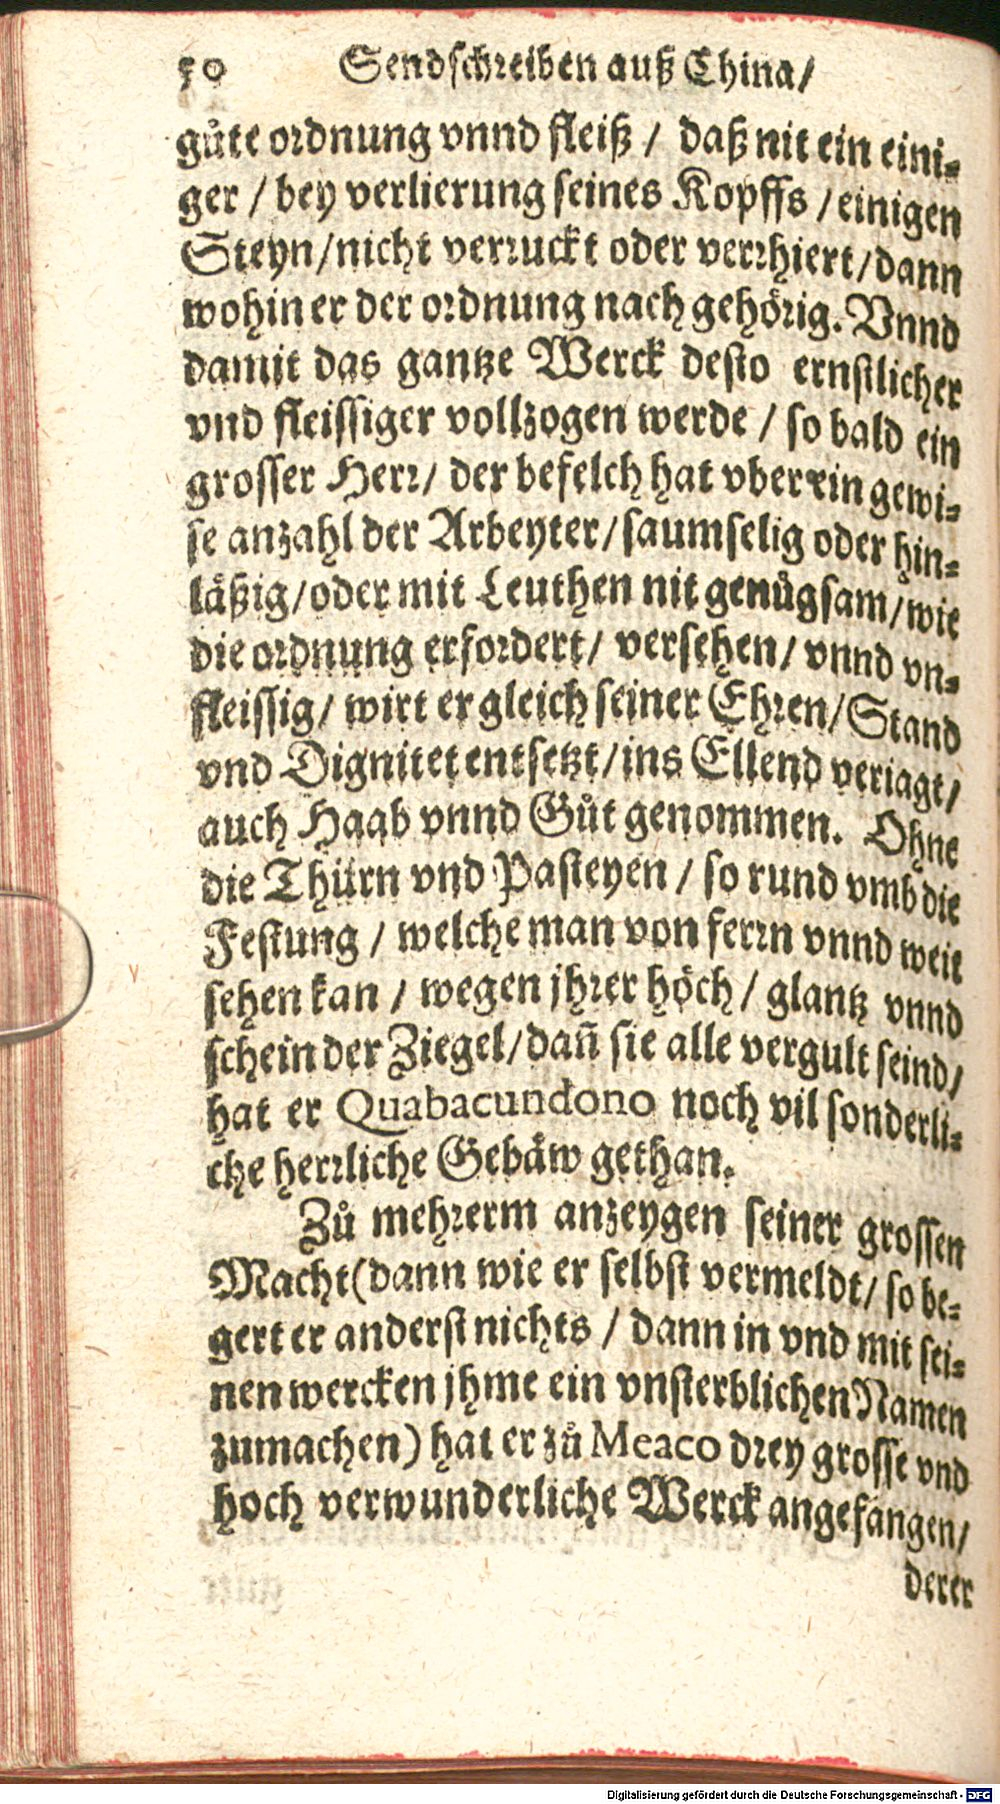 50 Sendschreiben auß China/
gůte ordnung vnnd fleiß / daß nit ein eini-
ger / bey verlierung seines Kopffs / einigen
Steyn/nicht verruckt oder verrhiert/dann
wohin er der ordnung nach gehörig. Vnnd
damit das gantze Werck desto ernstlicher
vnd fleissiger vollzogen werde / so bald ein
grosser Herr/ der befelch hat vber ein gewi-
se anzahl der Arbeyter/saumselig oder hin-
läßig/oder mit Leuthen nit genůgsam/wie
die ordnung erfordert/ versehen/ vnnd vn-
fleissig/ wirt er gleich seiner Ehren/Stand
vnd Dignitet entsetzt/ins Ellend veriagt/
auch Haab vnnd Gůt genommen. Ohne
die Thürn vnd Pasteyen / so rund vmb die
Festung / welche man von ferrn vnnd weit
sehen kan / wegen jhrer höch/ glantz vnnd
schein der Ziegel/dañ sie alle vergult seind/
hat er Quabacundono noch vil sonderli-
che herrliche Gebäw gethan.
Zů mehrerm anzeygen seiner grossen
Macht(dann wie er selbst vermeldt/ so be-
gert er anderst nichts / dann in vnd mit sei-
nen wercken jhme ein vnsterblichen Namen
zumachen) hat er zů Meaco drey grosse vnd
hoch verwunderliche Werck angefangen/
derer
Digitalisierung gefördert durch die Deutsche Forschungsgemeinschaft - DFG